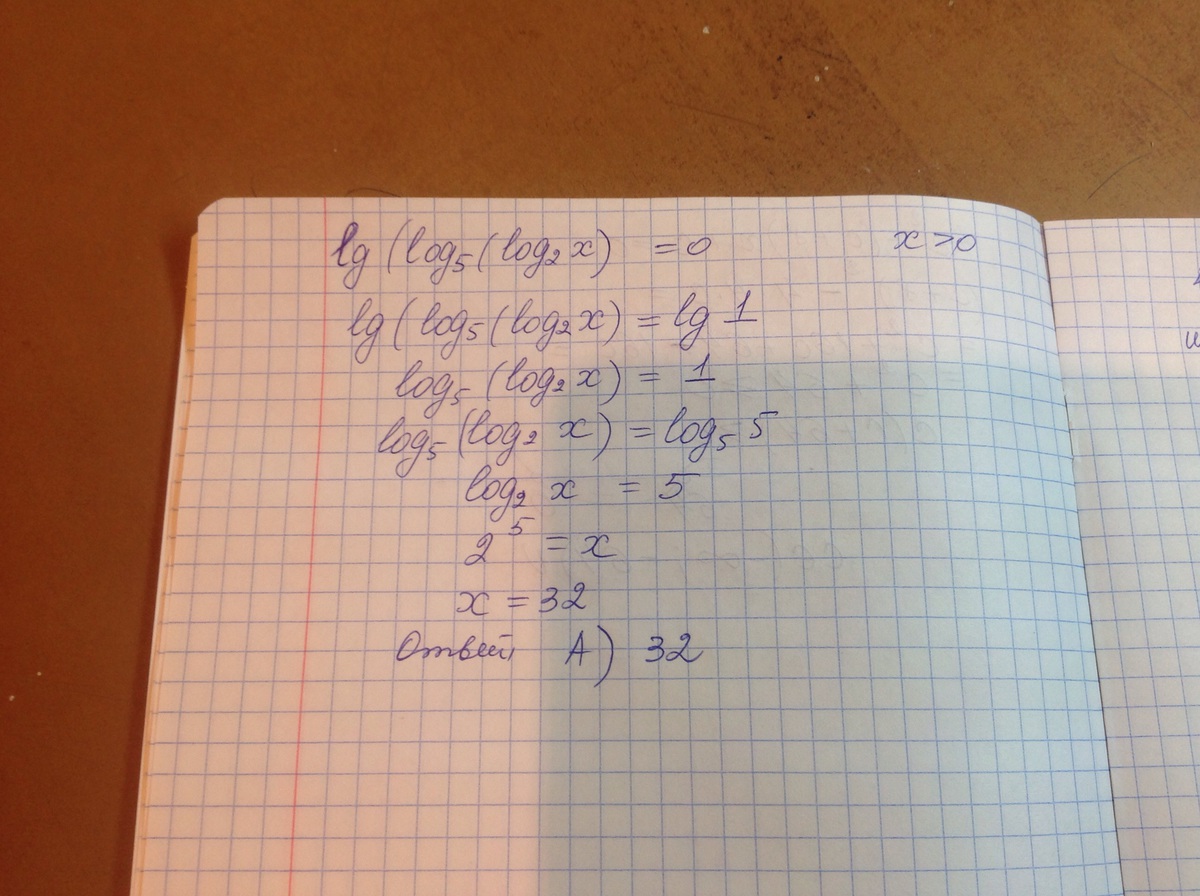 lg (log₅ (log₂ x) = 0 x > 0
lg (log₅ (log₂ x) = lg 1
log₅ (log₂ x) = 1
log₅ (log₂ x) = log₅ 5
log₂ x = 5
2⁵ = x
x = 32
Ответ A) 32